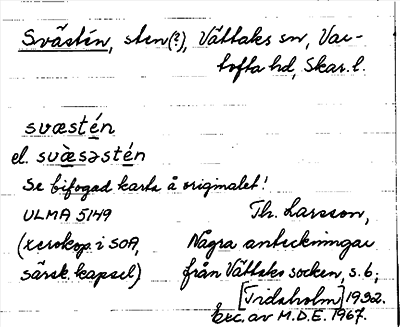 Svästén, sten(?), Vättaks sn, Var-
tofta hd, Skar. l.
svæstén
el. svæ̀səstén
Se bifogad karta å originalet!
ULMA 5149
(xerokop. i SOA,
särsk. kapsel)
Th. Larsson,
Några anteckningar
från Vättaks socken, s. 6,
[Tidaholm] 1932.
Exc. av M.D.E. 1967.